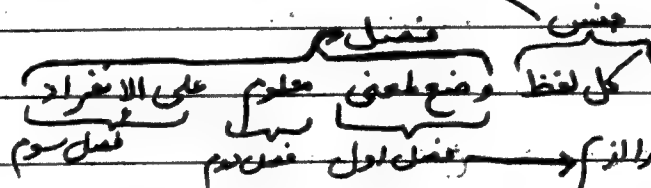 جنس فصل
كل لفظ وضع لمعنى معلوم على الانفراد
فصل اول فصل دوم فصل سوم